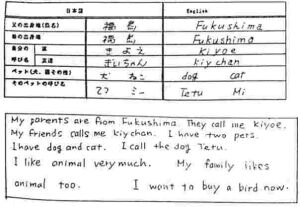 日本語 English
父の出身地(県名) 福島 Fukushima
母の出身地 福島 Fukushima
自分の 家 きよえ kiyoe
呼び名 友達 きいちゃん kiychan
ペット(犬、猫その他) 犬 ねこ dog cat
そのペットの呼び名 てつ ミー Tetu Mi
My parents are from Fukushima. They call me kiyoe.
My friends calls me kiychan. I have two pets.
I have dog and cat. I call the dog Tetu.
I like animal very much. My family likes
animal too. I want to buy a bird now.